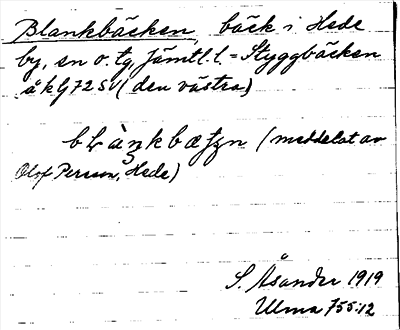 Blankbäcken, bäck i Hede
by, sn o. tg, Jämtl. l. = Styggbäcken
å kbl 72 SV (den västra)
blànkbætʃn (meddelat av
Olof Persson, Hede)
S. Åsander 1919
Ulma 755:12